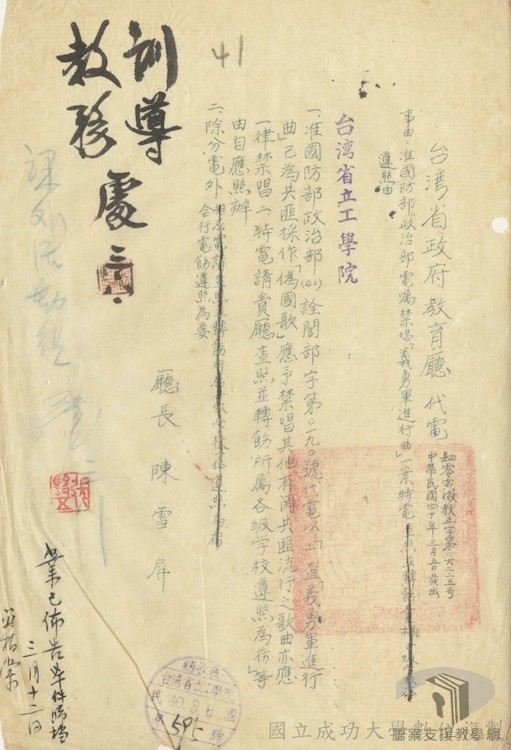 41
台湾省政府教育廳代電
中華民國四十年三月五日發出
事由：准國防部政治部電囑禁唱「義勇軍進行曲」一案特電
遵照由
台湾省立工學院
一、准國防部政治部(40)詮閣部字第〇一九〇號代電以「一、查「義勇軍進行
曲」已為共匪採作「偽國歌」應予禁唱其他有関共匪流行之歌曲亦應
一律禁唱二、特電請貴廳查照並轉飭所属各級学校遵照為荷」等
由自應照辦
二、除分電外
合行電飭遵照為要
廳長 陳雪屏
訓導
教務處
三、八
課外活動組
業已佈告舉件歸檔
三月十二日
595
國立成功大學數位複製
檔案支援教學網